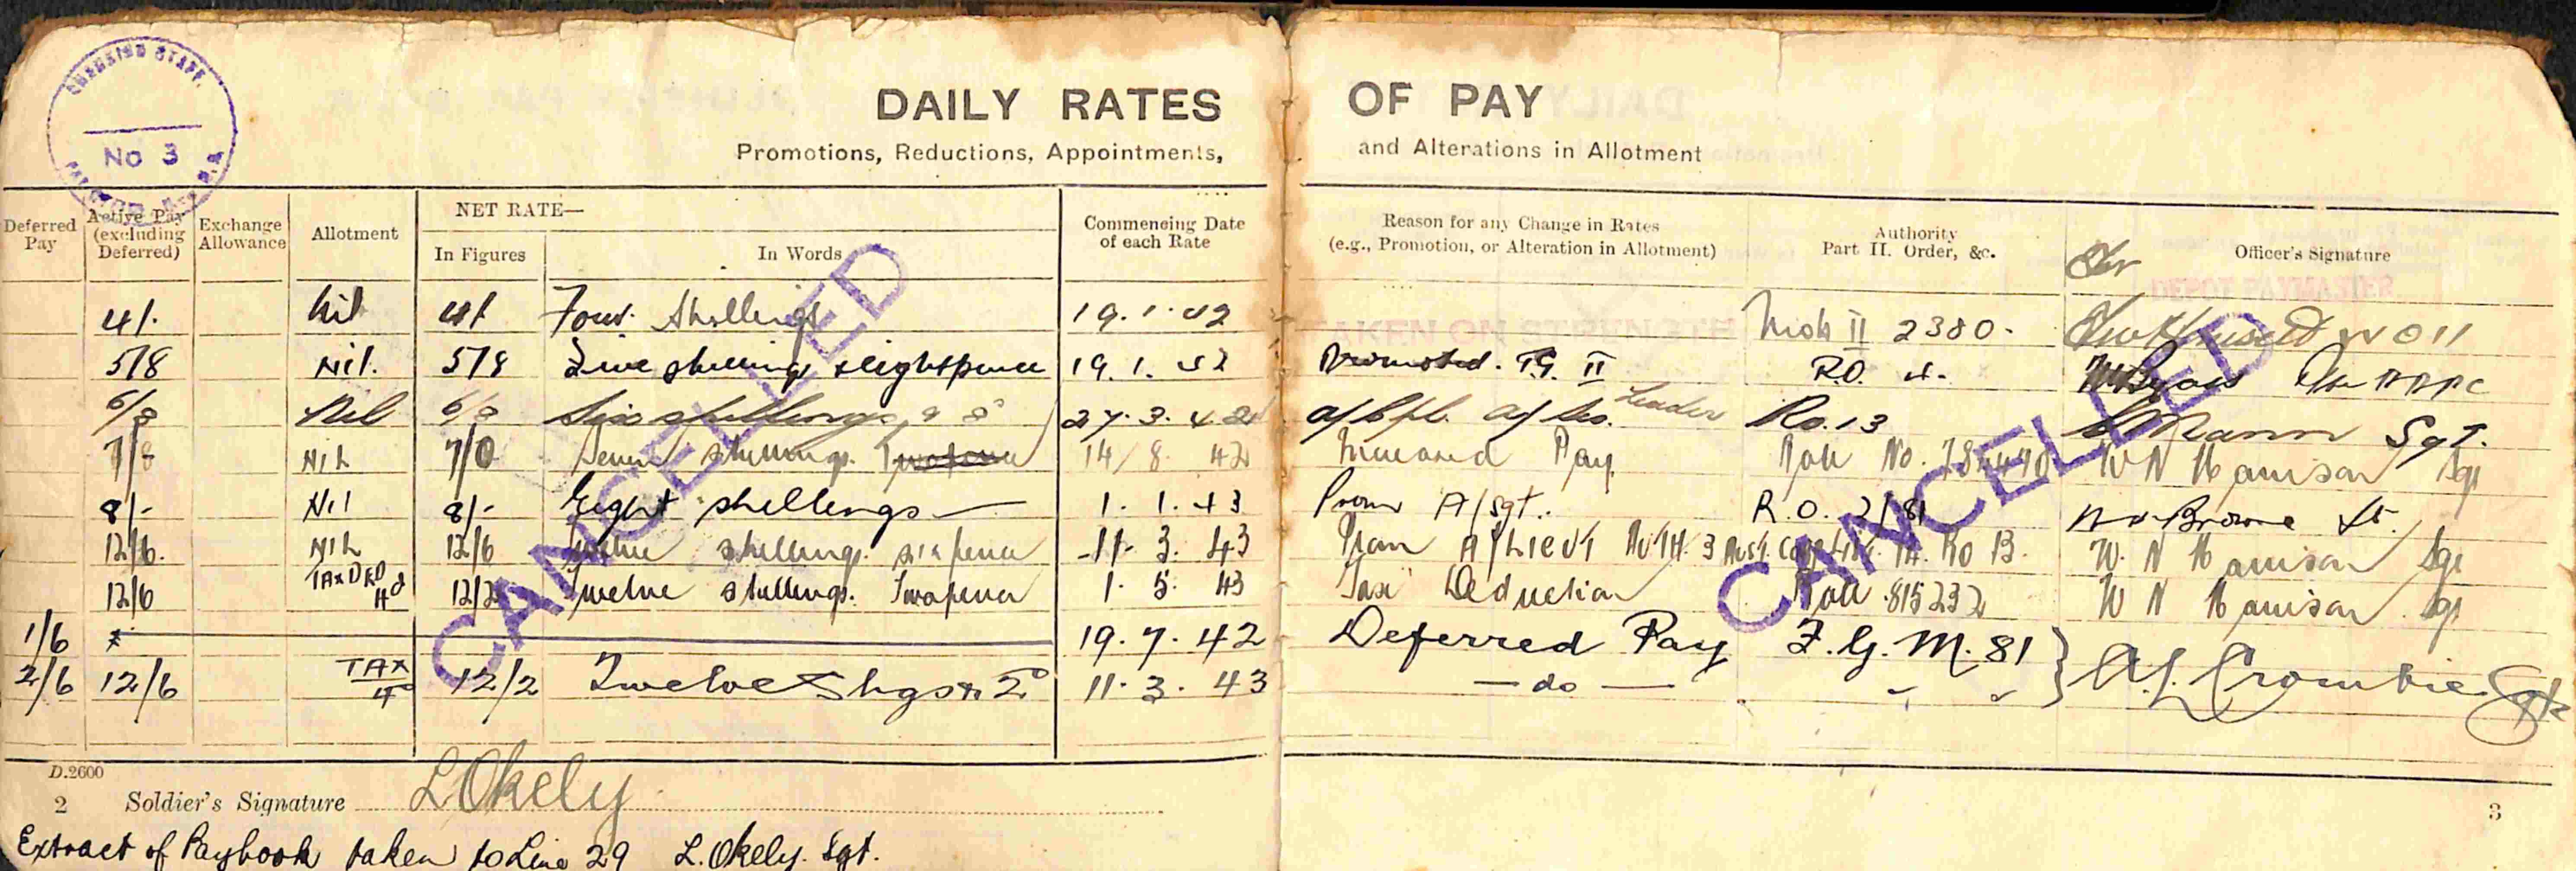 No 3
DAILY RATES OF PAY
Promotions, Reductions, Appointments, and Alterations in Allotment
Deferred Pay Active Pay (excluding Deferred) Exchange Allowance Allotment NET RATE— In Figures In Words Commencing Date of each Rate Reason for any Change in Rates (e.g., Promotion, or Alteration in Allotment) Authority Part II. Order, &c. Officer's Signature
DEPOT PAYMASTER
TAKEN ON STRENGTH
4/- Nil 4/- Four Shillings 19.1.42 Mob II 2380. WO II
5/8 Nil. 5/8 Five shillings & eightpence 19.1.42 Promoted. T.G. II R.O. 4.
6/8 Nil 6/8 Six shillings & 8° 27.3.42 Leader Ro.13 Mann Sgt.
7/8 NIL 7/0 Seven shillings 14/8 42 Increased Pay W N Harrison Sgt
8/- Nil 8/- Eight shillings — 1.1.43 Prom A/Sgt. R.O. 2/81 Browne Lt.
12/6. NIL 12/6 Twelve shillings sixpence 11.3.43 W. N Harrison Sgt
12/6 TAX DED 4d 12/2 Twelve shillings Twopence 1.5.43 Tax Deduction 815232 W N Harrison Sgt
1/6 19.7.42 Deferred Pay F.G.M. 81
2/6 12/6 TAX 4° 12/2 Twelve Shgs & 2° 11.3.43 — do — " " A.J. Crombie Sgt
CANCELLED
CANCELLED
D.2600
2 Soldier's Signature LOkely 3
Extract of Paybook taken to Line 29 L. Okely. Sgt.